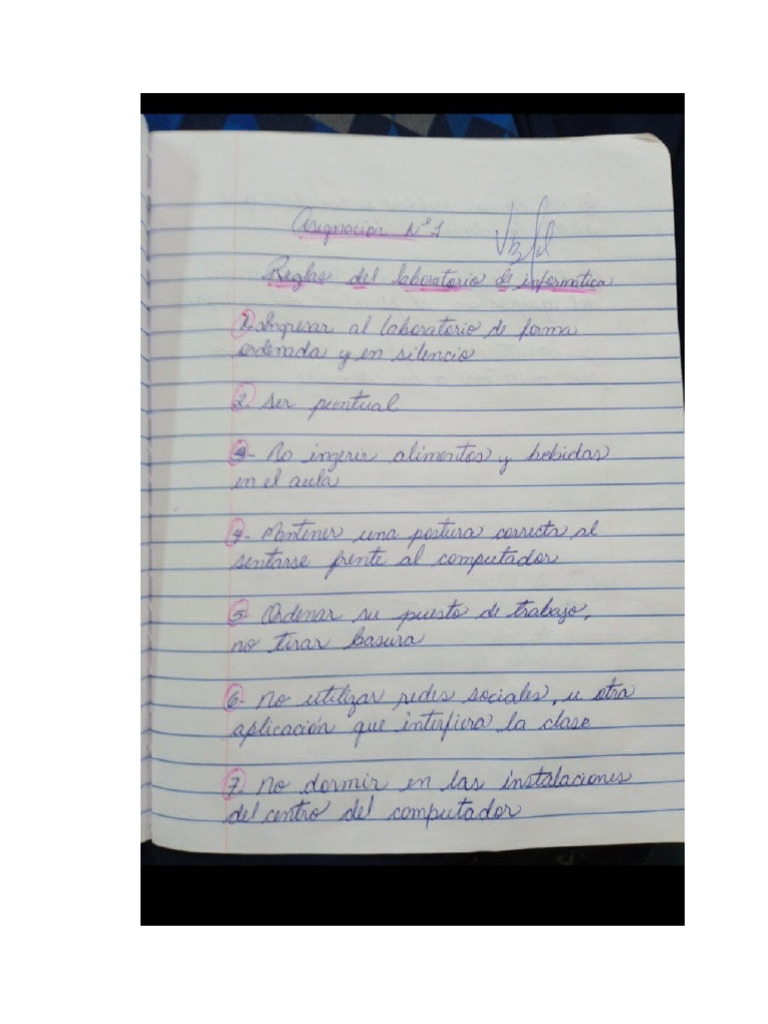 Asignación N°1
Reglas del laboratorio de informática
1. Ingresar al laboratorio de forma
ordenada y en silencio
2. ser puntual
3- No ingerir alimentos y bebidas
en el aula
4- Mantener una postura correcta al
sentarse frente al computador
5- Ordenar su puesto de trabajo,
no tirar basura
6- No utilizar redes sociales, u otra
aplicación que interfiera la clase
7. No dormir en las instalaciones
del centro del computador